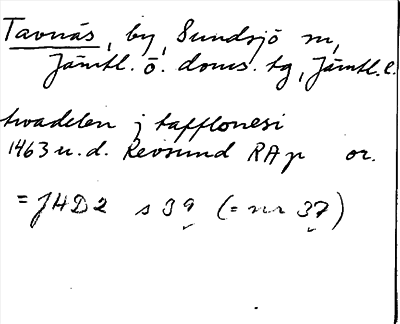 Tavnäs, by, Sundsjö sn,
Jämtl. ö. doms. tg, Jämtl. l.
twadelen j tafflonesi
1463 u. d. Revsund RAp or.
= JHD 2 s 39 (= nr 37)